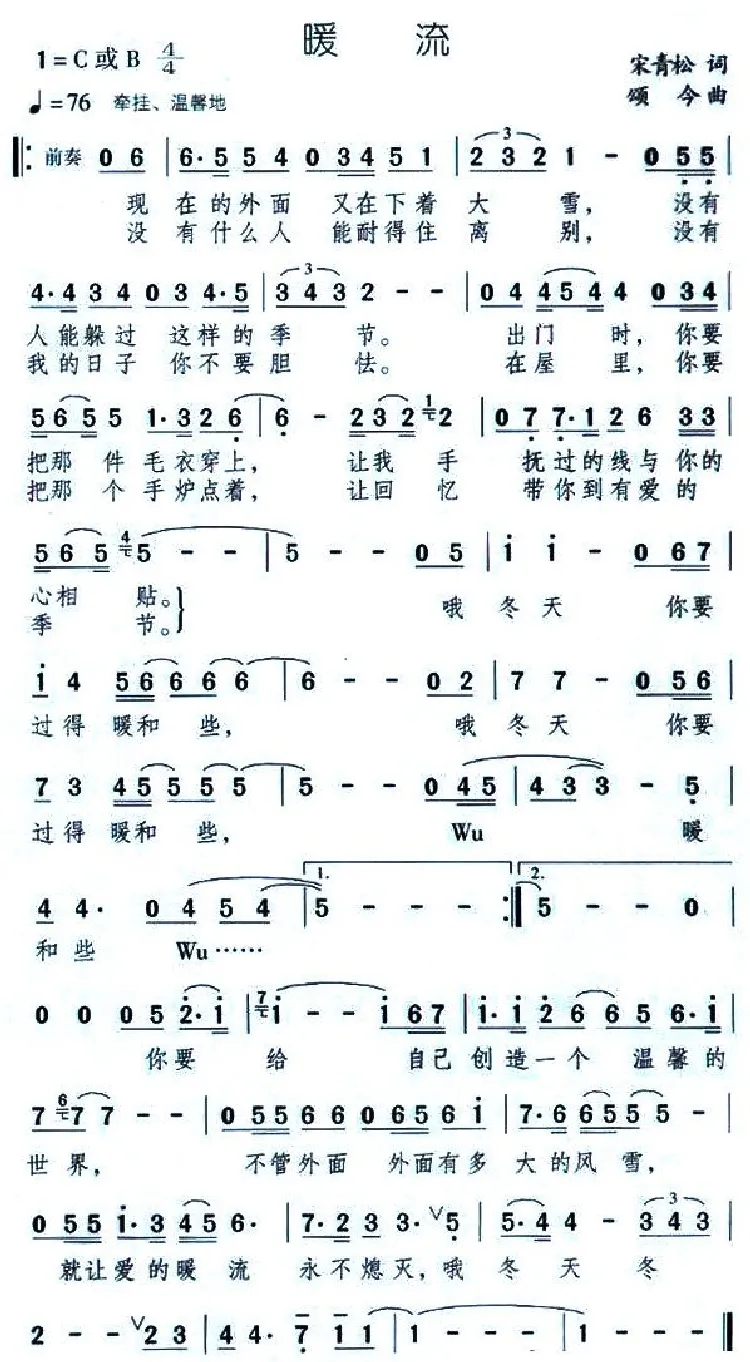 暖 流
1=C或B 4/4
宋青松 词
♩=76 牵挂、温馨地
颂 今 曲
前奏 0 6 | 6·5 5 4 0 3 4 5 1 | 2 3 2 1 - 0 5 5 |
现 在的外面 又在下着 大 雪, 没有
没 有什么人 能耐得住 离 别, 没有
4·4 3 4 0 3 4·5 | 3 4 3 2 - - | 0 4 4 5 4 4 0 3 4 |
人能躲过 这样的季 节。 出门 时,你要
我的日子 你不要胆 怯。 在屋 里,你要
5 6 5 5 1·3 2 6 | 6 - 2 3 2 1 2 | 0 7 7·1 2 6 3 3 |
把那 件 毛衣穿上, 让我 手 抚过的线与你的
把那 个 手炉点着, 让回 忆 带你到有爱的
5 6 5 4 5 - - | 5 - - 0 5 | i i - 0 6 7 |
心相 贴。
季 节。
哦 冬 天 你要
i 4 5 6 6 6 6 | 6 - - 0 2 | 7 7 - 0 5 6 |
过得 暖和 些, 哦 冬 天 你要
7 3 4 5 5 5 5 | 5 - - 0 4 5 | 4 3 3 - 5 |
过得 暖和 些, Wu 暖
4 4· 0 4 5 4 | 1. 5 - - - :| 2. 5 - - 0 |
和些 Wu……
0 0 0 5 2·i | 7 i - - i 6 7 | i·i 2 6 6 5 6·i |
你要 给 自己 创造一个 温馨的
7 6 7 7 - - | 0 5 5 6 6 0 6 5 6 i | 7·6 6 5 5 5 - |
世 界, 不管外面 外面有多 大的风 雪,
0 5 5 i·3 4 5 6· | 7·2 3 3·∨5 | 5·4 4 - 3 4 3 |
就让爱的暖 流 永不熄灭,哦 冬 天 冬
2 - - ∨2 3 | 4 4· 7 1 1 | 1 - - - | 1 - - - ‖